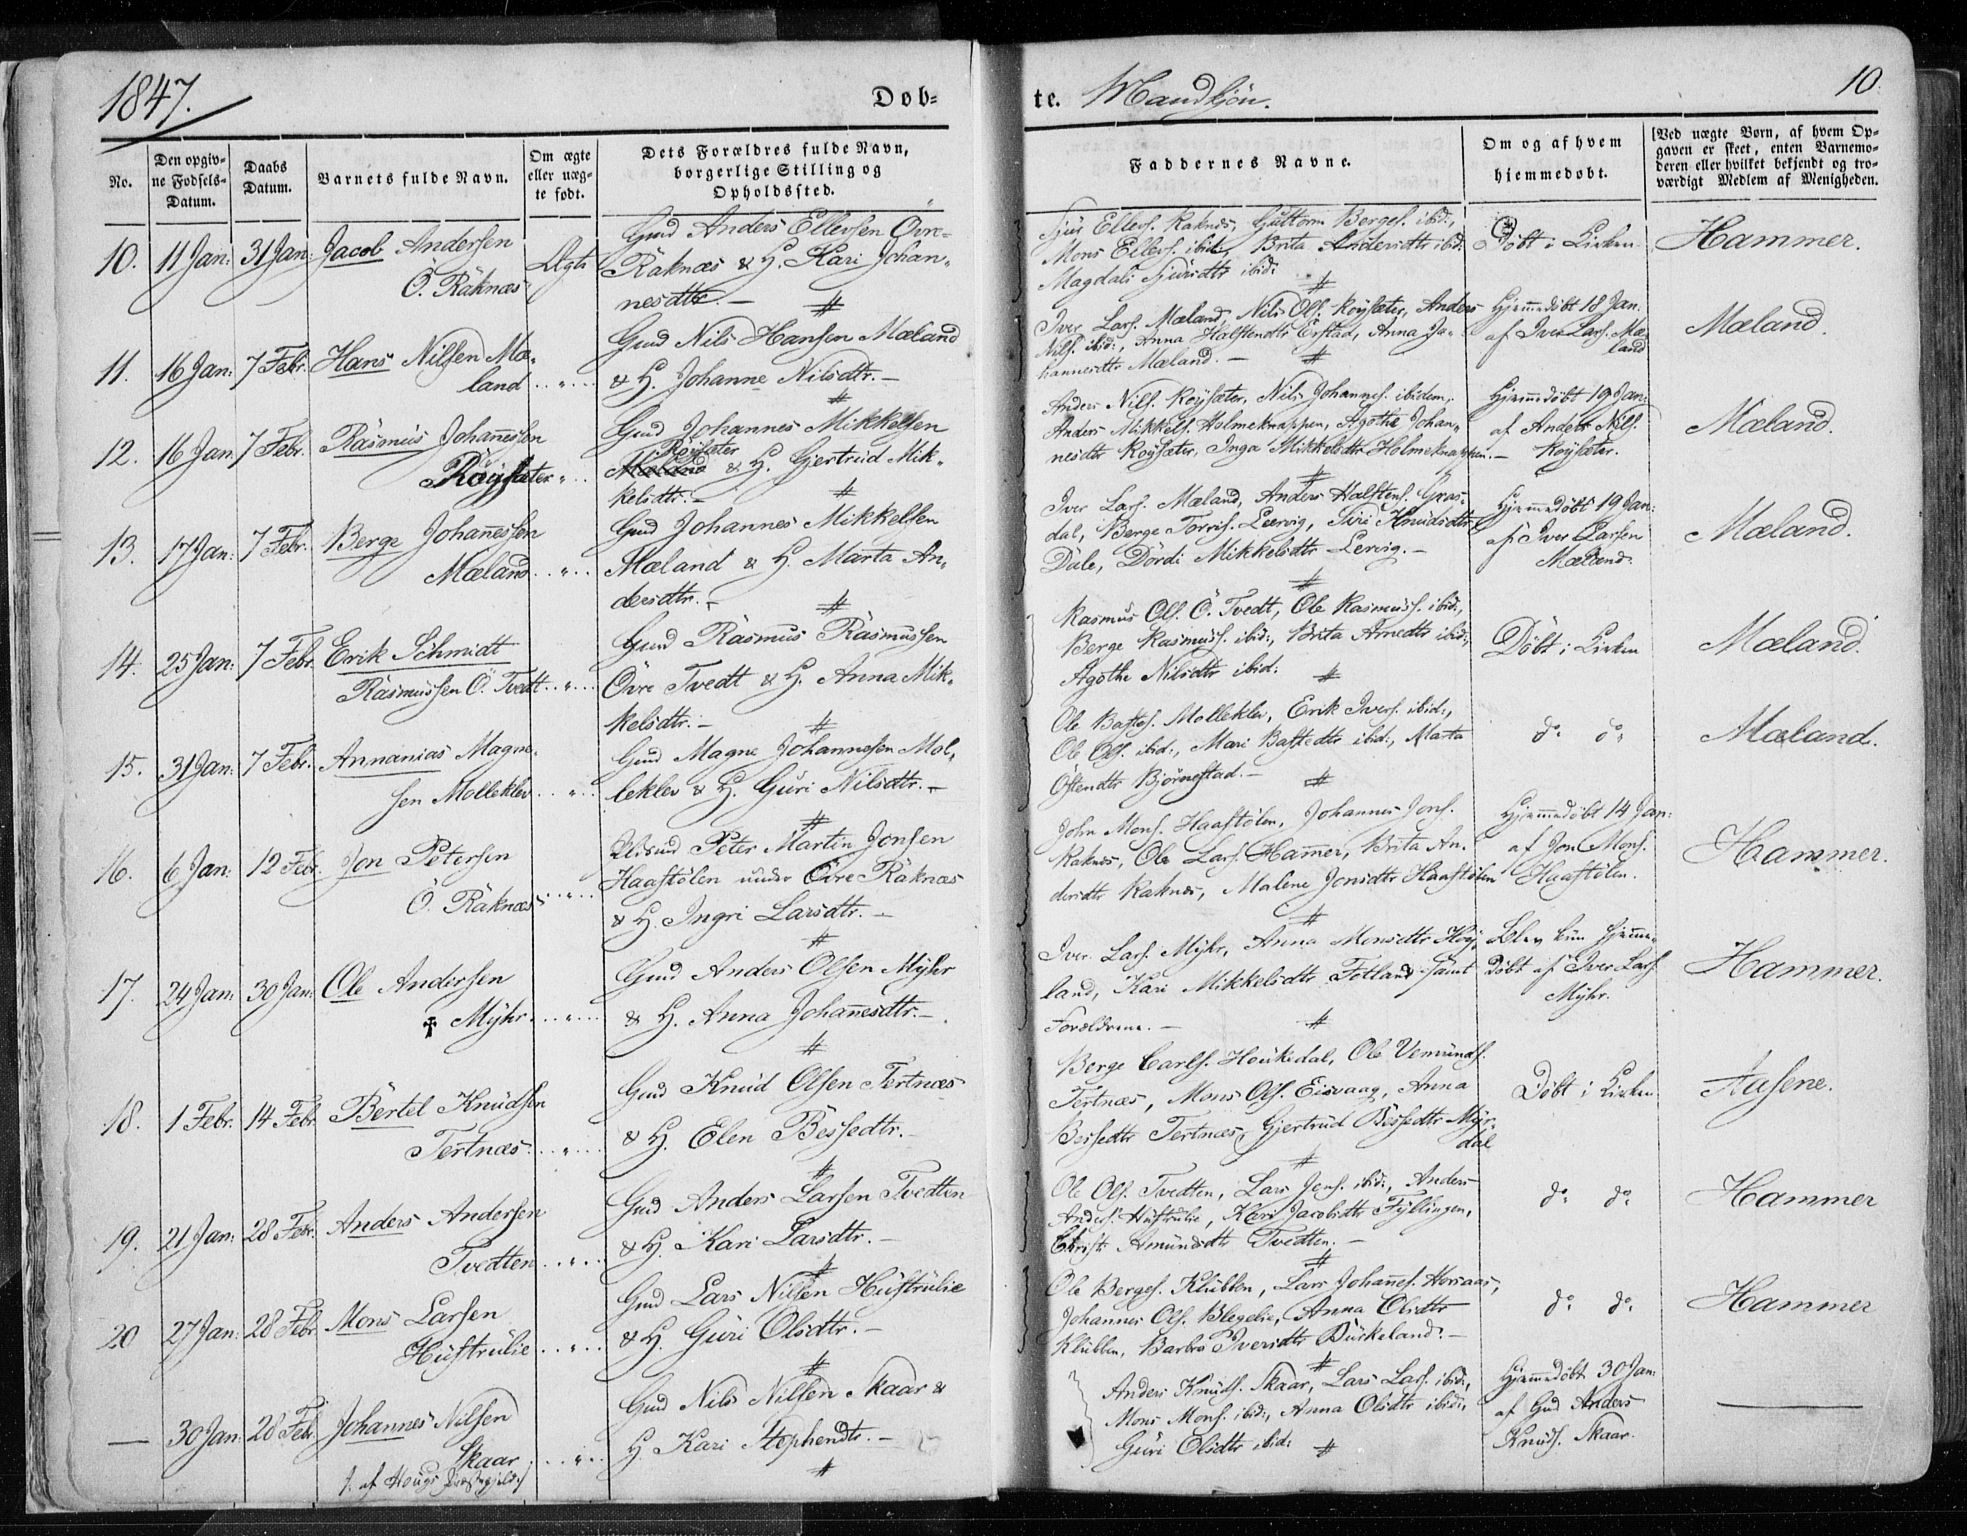 1847.
Dob-
te. Mandkjön.
10.
No.
Den opgiv-
ne Fødsels-
Datum.
Daabs
Datum.
Barnets fulde Navn.
Om ægte
eller uæg-
te født.
Dets Forældres fulde Navn,
borgerlige Stilling og
Opholdssted.
Faddernes Navne.
Om og af hvem
hjemmedøbt.
Ved uægte Børn, af hvem Op-
gaven er skeet, enten Barnemo-
deren eller hvilket bekjendt og tro-
værdigt Medlem af Menigheden.
10. 11 Jan: 31 Jan: Jacob Andersen
Ö. Räknæs
Ægte
Gmd Anders Ellevsen Övre-
Räknæs & H. Kari Johan-
nesdtr. —
Sjur Ellevs. Raknæs, Guttorm Berges. ibid:,
Mons Ellevs. ibid:, Brita Andersdtr ibid:
Magdali Sjursdtr ibid:
Döbt i Kirken
Hammer.
11. 16 Jan: 7 Febr. Hans Nilsen Mæ-
land
Gmd Nils Hansen Mæland
& H. Johanne Nilsdtr. —
Iver Lars. Mæland, Nils Ols. Röysæter, Anders
Nils. ibid:, Anna Halstendtr Erstad, Anna Jo-
hannesdtr Mæland. —
Hjemmedöbt 18 Jan.
af Iver Lars. Mæ-
land
Mæland.
12. 16 Jan: 7 Febr. Räsmus Johannessen
Röysæter
Gmd Johannes Mikkelsen
Röysæter
Mæland & H. Gjertrud Mik-
kelsdtr. —
Anders Nils. Röysæter, Nils Johannes. ibidem,
Anders Mikkels. Holmeknappen, Agothe Johan-
nesdtr Röysæter, Inga Mikkelsdtr Holmeknappen. —
Hjemmedöbt 19 Jan:
af Anders Nils.
Röysæter.
Mæland.
13. 17 Jan: 7 Febr. Berge Johannessen
Mæland
Gmd Johannes Mikkelsen
Mæland & H. Marta An-
dersdtr. —
Iver Lars. Mæland, Anders Halstens. Gras-
dal, Berge Torris. Leervig, Siri Knudsdtr
Dale, Dördi Mikkelsdtr Lervig. —
Hjemmedöbt 19 Jan:
af Iver Larsen
Mæland.
Mæland.
14. 25 Jan: 7 Febr. Erik Schmidt
Räsmussen Ö. Tvedt
Gmd Räsmus Räsmussen
Övre Tvedt & H. Anna Mik-
kelsdtr. —
Rasmus Ols. Ö. Tvedt, Ole Rasmuss. ibid:,
Berge Rasmuss. ibid:, Brita Arnedtr ibid:,
Agothe Nilsdtr ibid:
Döbt i Kirken
Mæland.
15. 31 Jan: 7 Febr. Annanias Magne-
sen Molleklev
Gmd Magne Johannesen Mol-
leklev & H. Guri Nilsdtr. —
Ole Bastes. Molleklev, Erik Ivers. ibid:,
Ole Ols. ibid:, Mari Bastedtr ibid:, Marta
Östendtr Björnestad. —
do do
Mæland.
16. 6 Jan: 12 Febr. Jon Petersen
Ö. Räknæs
Peter Martin Jonsen
Haastölen under Övre Räknæs
& H. Ingri Larsdtr. —
John Mons. Haastölen, Johannes Jons.
Raknæs, Ole Lars. Hammer, Brita An-
dersdtr Raknæs, Malene Jonsdtr Haastölen
Hjemmedöbt 14 Jan:
af Jon Mons.
Haastölen.
Hammer.
17. 24 Jan: 30 Jan: Ole Andersen
✝ Mÿhr
Gmd. Anders Olsen Mÿhr
& H. Anna Johannesdtr. —
Iver Lars. Mÿhr, Anna Monsdtr Höy-
land, Kari Mikkelsdtr Fotland samt
Forældrene. —
Blev kun hjemme-
döbt af Iver Lars.
Mÿhr.
Hammer.
18. 1 Febr. 14 Febr. Bertel Knudsen
Tertnæs
Gmd Knud Olsen Tertnæs
& H. Elen Bessedtr. —
Berge Carls. Houkedal, Ole Vemunds.
Tertnæs, Mons Ols. Eisvaag, Anna
Bessedtr Tertnæs, Gjertrud Bessedtr Mÿr-
dal
Döbt i Kirken
Aasene.
19. 21 Jan: 28 Febr. Anders Andersen
Tvedten
Gmd Anders Larsen Tvedten
& H. Kari Larsdtr. —
Ole Ols. Tvedten, Lars Jens. ibid:, Anders
Anders. Hustrulie, Kari Jacobsdtr Fÿllingen,
Christi Amundsdtr Tvedten. —
do do
Hammer
20 27 Jan: 28 Febr. Mons Larsen
Hustrulie
Gmd Lars Nilsen Hustrulie
& H. Guri Olsdtr. —
Ole Berges. Klubben, Lars Johannes. Horsaas,
Johannes Ols. Blegelie, Anna Olsdtr
Klubben, Barbro Iversdtr Birkeland. —
do do
Hammer
— 30 Jan: 28 Febr. Johannes Nilsen
Skaar
/: af Hougs Præstegjeld:/
Gmd Nils Nilsen Skaar &
H. Kari Stephendtr. —
Anders Knuds. Skaar, Lars Lars. ibid:,
Mons Mons. ibid:, Anna Olsdtr ibid:,
Guri Olsdtr ibid:
Hjemmedöbt 30 Jan:
af Gmd Anders
Knuds. Skaar.